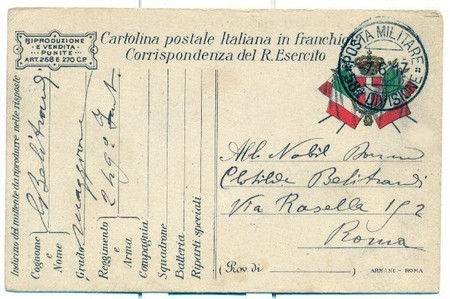 RIPRODUZIONE
E VENDITA
PUNITE
ART. 268 E 270 C.P.
Cartolina postale Italiana in franchigia
Corrispondenza del R. Esercito
POSTA MILITARE
DIVISIONE
Indirizzo del mittente da riprodurre nelle risposte
Cognome e Nome
Grado Maggiore
Reggimento e Arma 249° Fant.
Compagnia
Squadrone
Batteria
Riparti speciali
Alla Nobil Donna
Clotilde Belitrandi
Via Rasella 152
Roma
(Prov. di )
ARMANI - ROMA